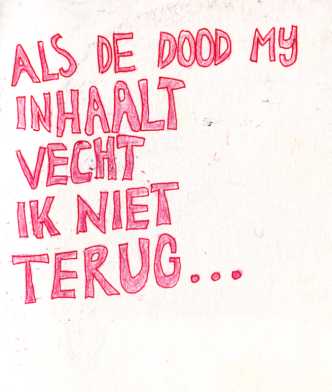 ALS DE DOOD MY
INHAALT
VECHT
IK NIET
TERUG...